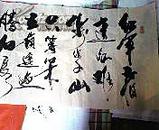 红军不怕
远征难
万水千山
只等闲
五岭逶迤
腾细浪